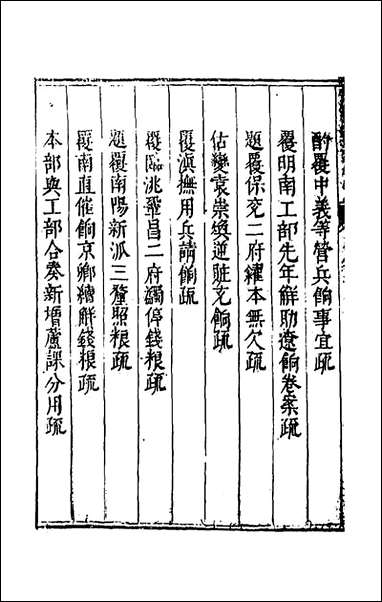 酌覆中義等營兵餉事宜疏
覆明南工部先年觧助遼餉卷案疏
題覆保兖二府糴本無欠疏
估變袁崇煥逆賍充餉疏
覆滇撫用兵請餉疏
覆臨洮鞏昌二府蠲停錢粮疏
題覆南陽新派三釐照粮疏
覆南直催餉京鄉續觧錢粮疏
本部與工部合奏新增蘆課分用疏